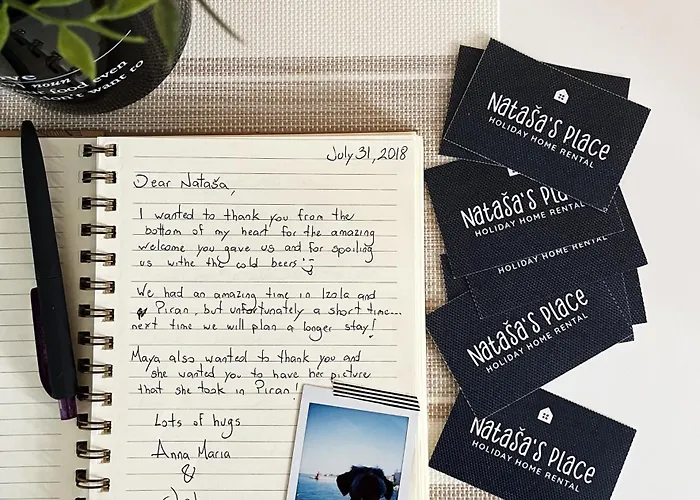 ve
noun
food even
don't want to
July 31, 2018
Dear Nataša,
I wanted to thank you from the
bottom of my heart for the amazing
welcome you gave us and for spoiling
us withe the cold beers
We had an amazing time in Izola and
Piran, but unfortunately a short time...
next time we will plan a longer stay!
Maya also wanted to thank you and
she wanted you to have her picture
that she took in Piran!
Lots of hugs
Anna Maria
&
NATAŠA'S PLACE
HOLIDAY HOME RENTAL
NATAŠA'S PLA
HOLIDAY HOME RENTAL
HOLIDAY HOME RENTAL
NATAŠA'S PLACE
HOLIDAY HOME RENTAL
NATAŠA'S PLACE
HOLIDAY HOME RENTAL